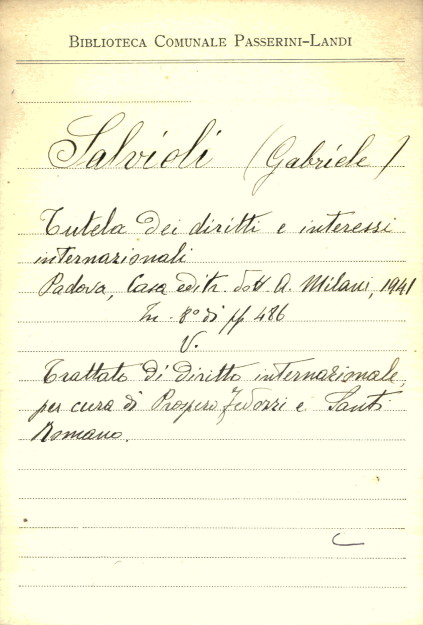 BIBLIOTECA COMUNALE PASSERINI-LANDI
Salvioli (Gabriele)
Tutela dei diritti e interessi
internazionali
Padova, Casa editr. dott. A. Milani, 1941
In-8° di pp 486
V.
Trattato di diritto internazionale,
per cura di Prospero Fedozzi e Santi
Romano.